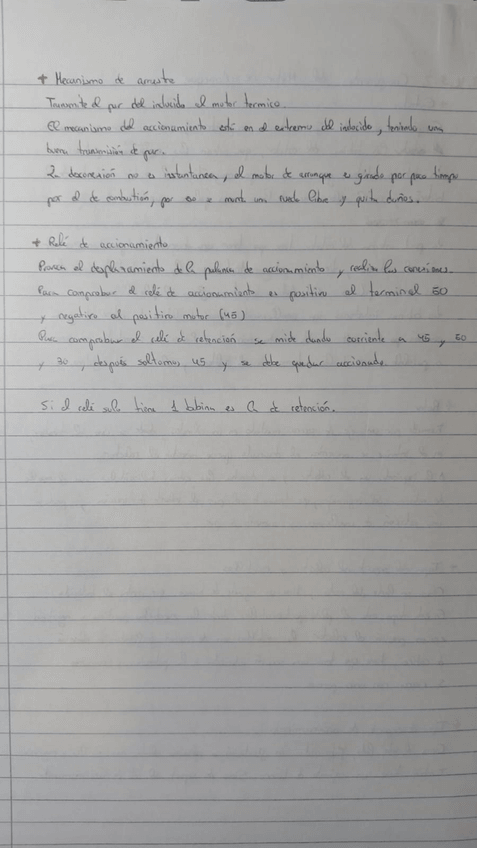 + Mecanismo de arrastre
Transmite el par del inducido al motor termico.
El mecanismo del accionamiento está en el extremo del inducido, teniendo una
buena transmisión de par.
La desconexión no es instantanea, el motor de arranque es girado por poco tiempo
por el de combustión, por eso se monta una rueda libre y quita daños.
+ Relé de accionamiento
Provoca el desplazamiento de la palanca de accionamiento y realiza las conexiones.
Para comprobar el relé de accionamiento es positivo al terminal 50
y negativo al positivo motor (45)
Para comprobar el relé de retención se mide dando corriente a 45, 50
y 30, después soltamos 45 y se debe quedar accionado.
Si el relé solo tiene 1 bobina es la de retención.